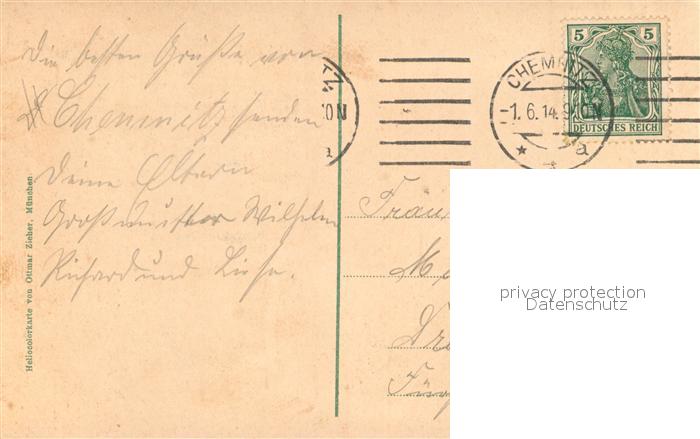 Die besten Grüße von
Chemnitz senden
Deine Eltern
Großmutter Wilhelm
Richard und Liese.
Heliocolorkarte von Ottmar Zieher, München
TZ
ON
a
CHEMNITZ
-1.6.14.9 ON
* a
5 5
DEUTSCHES REICH
Frau
privacy protection
Datenschutz